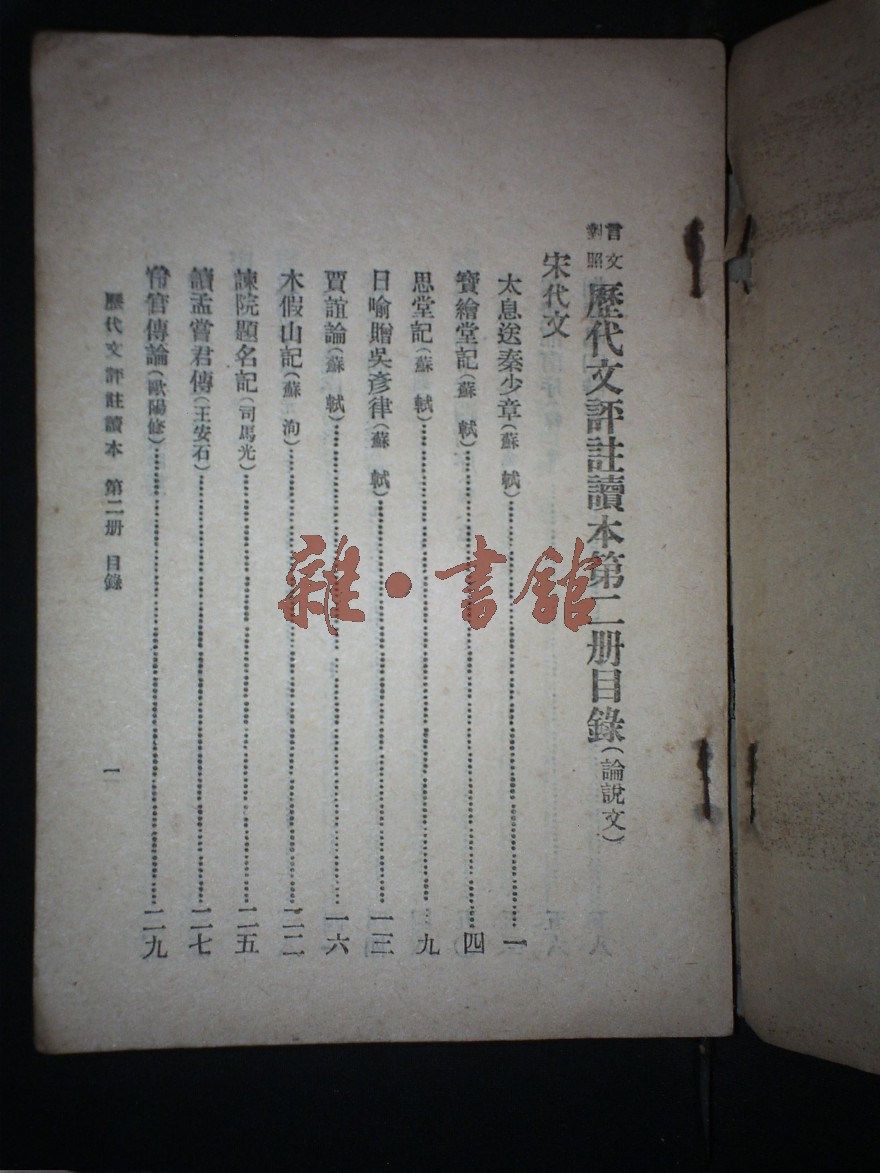 言文對照 歷代文評註讀本第二册目錄(論說文)
宋代文
太息送秦少章(蘇軾)……一
寶繪堂記(蘇軾)……四
思堂記(蘇軾)……九
日喻贈吳彥律(蘇軾)……一三
賈誼論(蘇軾)……一六
木假山記(蘇洵)……二二
諫院題名記(司馬光)……二五
讀孟嘗君傳(王安石)……二七
宦官傳論(歐陽修)……二九
歷代文評註讀本 第二册 目錄
一
雜·書館